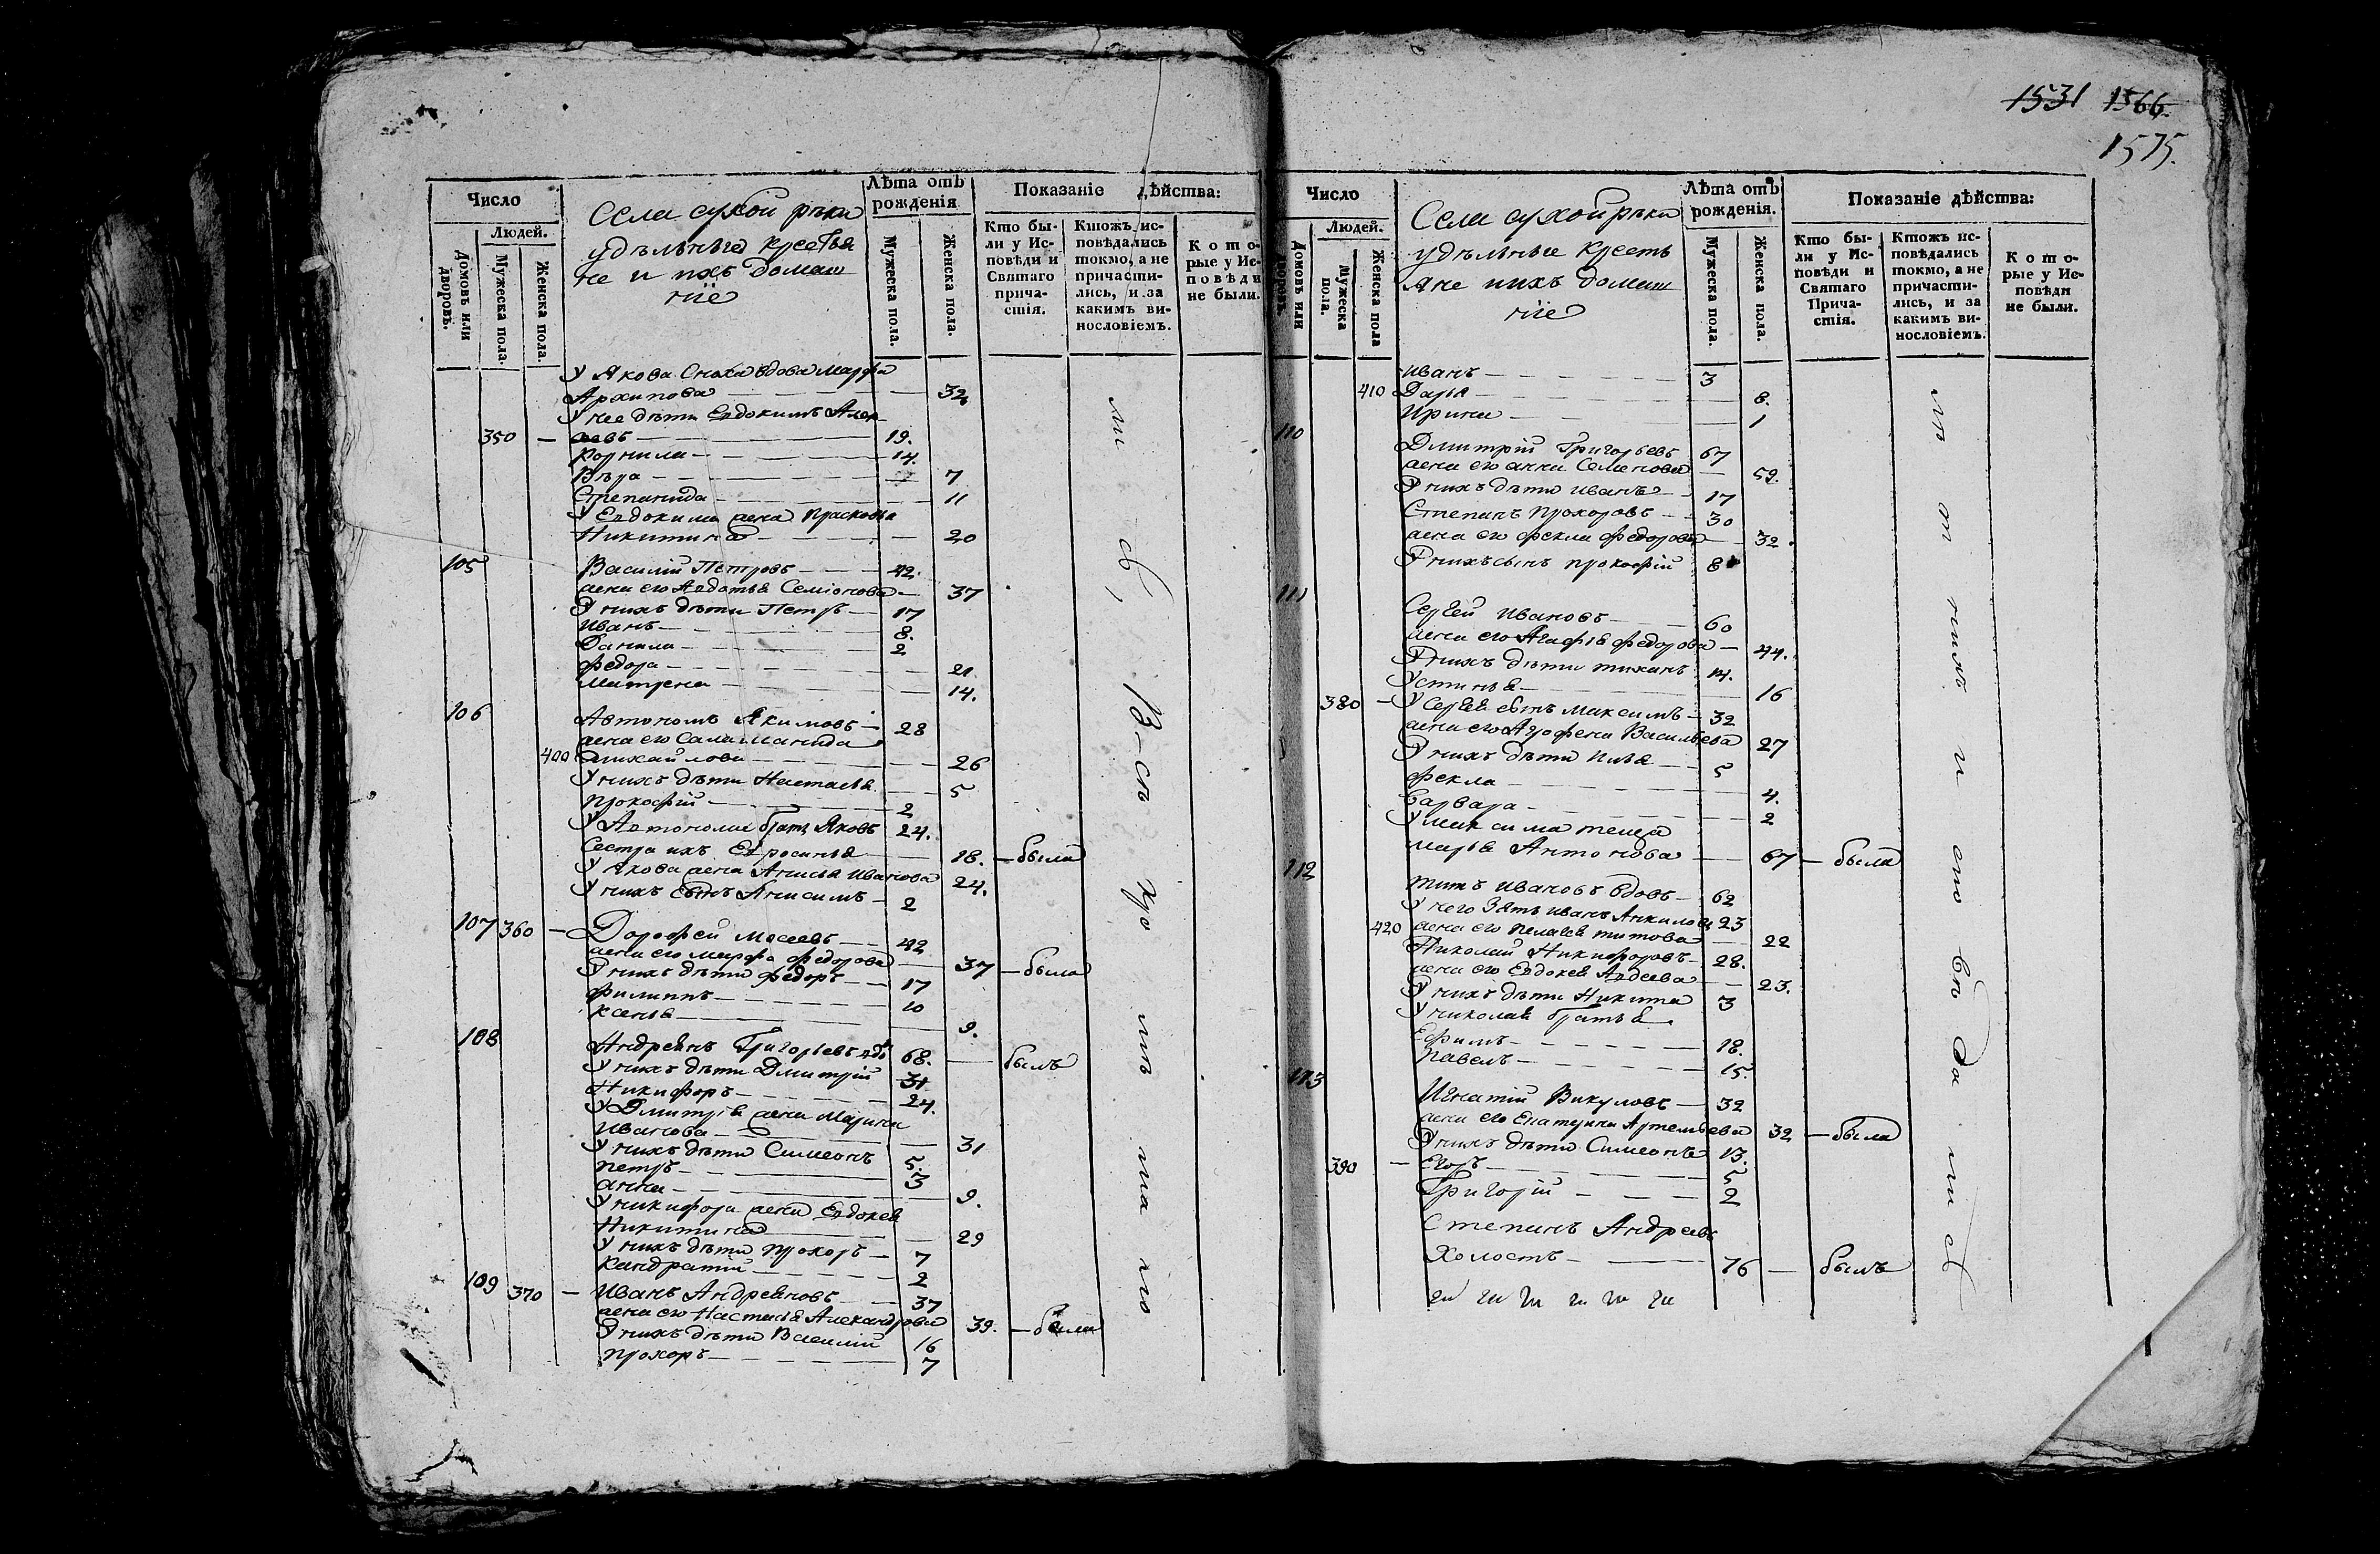 1531 1566.
1575.
Число
Села сухой рѣки
удѣльные Крестья
не и ихъ домаш
ніе
Лѣта отъ рожденія
Показаніе дѣйства:
Людей.
Домовъ или дворовъ.
Мужеска пола.
Женска пола.
Мужеска пола.
Женска пола.
Кто бы-
ли у Ис-
повѣди и
Святаго
прича-
стія.
Ктожъ ис-
повѣдались
токмо, а не
причасти-
лись, и за
какимъ ви-
нословіемъ.
Кото-
рые у Ис-
повѣди
не были.
У Якова Сноха вдова Марфа
Архипова 32
У нее дѣти Евдокимъ Алек
350 — сѣевъ 19.
Корнила 14.
Вѣра 7
Степанида 11
У Евдокима жена Прасковья
Никитина 20
105 Василій Петровъ 42.
жена его Авдотья Семіонова 37
У нихъ дѣти Петръ 17
Иванъ 8.
Данила 2
Федора 21
Матрена 14.
106 Автономъ Якимовъ 28
жена его Саламанида
400 Михайлова 26
У нихъ дѣти Настасья 5
Прокофій 2
У Автонома братъ Яковъ 24.
Сестра ихъ Ефросинья 18. — была
У Якова жена Анисья Иванова 24.
У нихъ сынъ Анисимъ 2
107 360 — Дорофей Мосеевъ 42
жена его Марфа Федорова 37 — была
У нихъ дѣти Федоръ 17
Филиппъ 10
Ксенья 9.
108 Андреянъ Григорьевъ вдо 68. — былъ
У нихъ дѣти Дмитрій 31
Никифоръ 24.
У Дмитрія жена Марина
Иванова 31
У нихъ дѣти Симеонъ 5.
Петръ 3
Анна 9.
У Никифора жена Евдокея
Никитина 29
У нихъ дѣти Прохоръ 7
Кандратій 2
109 370 — Иванъ Андреяновъ 37
жена его Настасья Александрова 39. — была
У нихъ дѣти Василій 16
Прохоръ 7
Число
Села сухой рѣки
удѣльные Кресть
яне и ихъ домаш
ніе
Лѣта отъ рожденія.
Показаніе дѣйства:
Людей.
Домовъ или дворовъ.
Мужеска пола.
Женска пола
Мужеска пола.
Женска пола.
Кто бы-
ли у Ис-
повѣди и
Святаго
Прича-
стія.
Ктожъ ис-
повѣдались
токмо, а не
причасти-
лись, и за
какимъ ви-
нословіемъ.
Кото-
рые у Ис-
повѣди
не были.
Иванъ 3
410 Дарья 8.
Ирина 1
110 Дмитрій Григорьевъ 67
жена его Анна Семенова 59.
У нихъ дѣти Иванъ 17
Степанъ Прохоровъ 30
жена его Фекла Федорова 32
У нихъ сынъ Прокофій 8
111 Сергей Ивановъ 60
жена его Агафья Федорова 44.
У нихъ дѣти Тиханъ 14.
Устинья 16
380 — У Сергея сынъ Максимъ 32
жена его Агрофена Васильева 27
У нихъ дѣти Илья 5
Фекла 4.
Варвара 2
У Максима теща
Марья Антонова 67 — была
112 Титъ Ивановъ вдовъ 62
У него зять Иванъ 23
420 жена его Пелагея Титова 22
Николай Никифоровъ 28.
жена его Евдокея Авдеева 23.
У нихъ дѣти Никита 3
У Николая братья
Ефимъ 18.
Павелъ 15.
113 Игнатій Викуловъ 32
жена его Екатерина Артемьева 32 — была
У нихъ дѣти Симеонъ 13.
390 — Егоръ 5
Григорій 2
Степанъ Андреевъ
Холостъ 76 — былъ